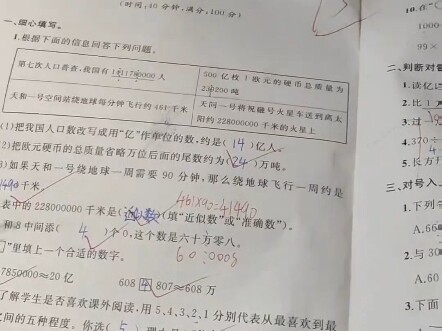 (时间:40分钟,满分:100分)
一、细心填写。
1.根据下面的信息回答下列问题。
第七次人口普查,我国有 人
500亿枚1欧元的硬币总质量为
230200吨
天和一号空间站绕地球每分钟飞行约461千米
天问一号将祝融号火星车送到离太
阳约228000000千米的火星上
(1)把我国人口数改写成用“亿”作单位的数,约是(14)亿人。
(2)把欧元硬币的总质量省略万位后面的尾数约为(24)万吨。
)如果天和一号绕地球一周需要90分钟,那么绕地球飞行一周约是
41490千米。
461×90=41440
表中的228000000千米是(近似数)(填“近似数”或“准确数”)。
和8中间添(4)个0,这个数是六十万零八。
60:0008
”里填上一个合适的数字。
7850000≈20亿
608 4 807≈608万
了解学生是否喜欢课外阅读,用5、4、3、2、1分别代表从最喜欢到最
之间的五种程度。你选(5)
10.在“
99×
二、判断对错
1.读亿
2.比1
3.过
4.长方
三、对号入
1.下列
A.66
2.与30
A.60
3.下面